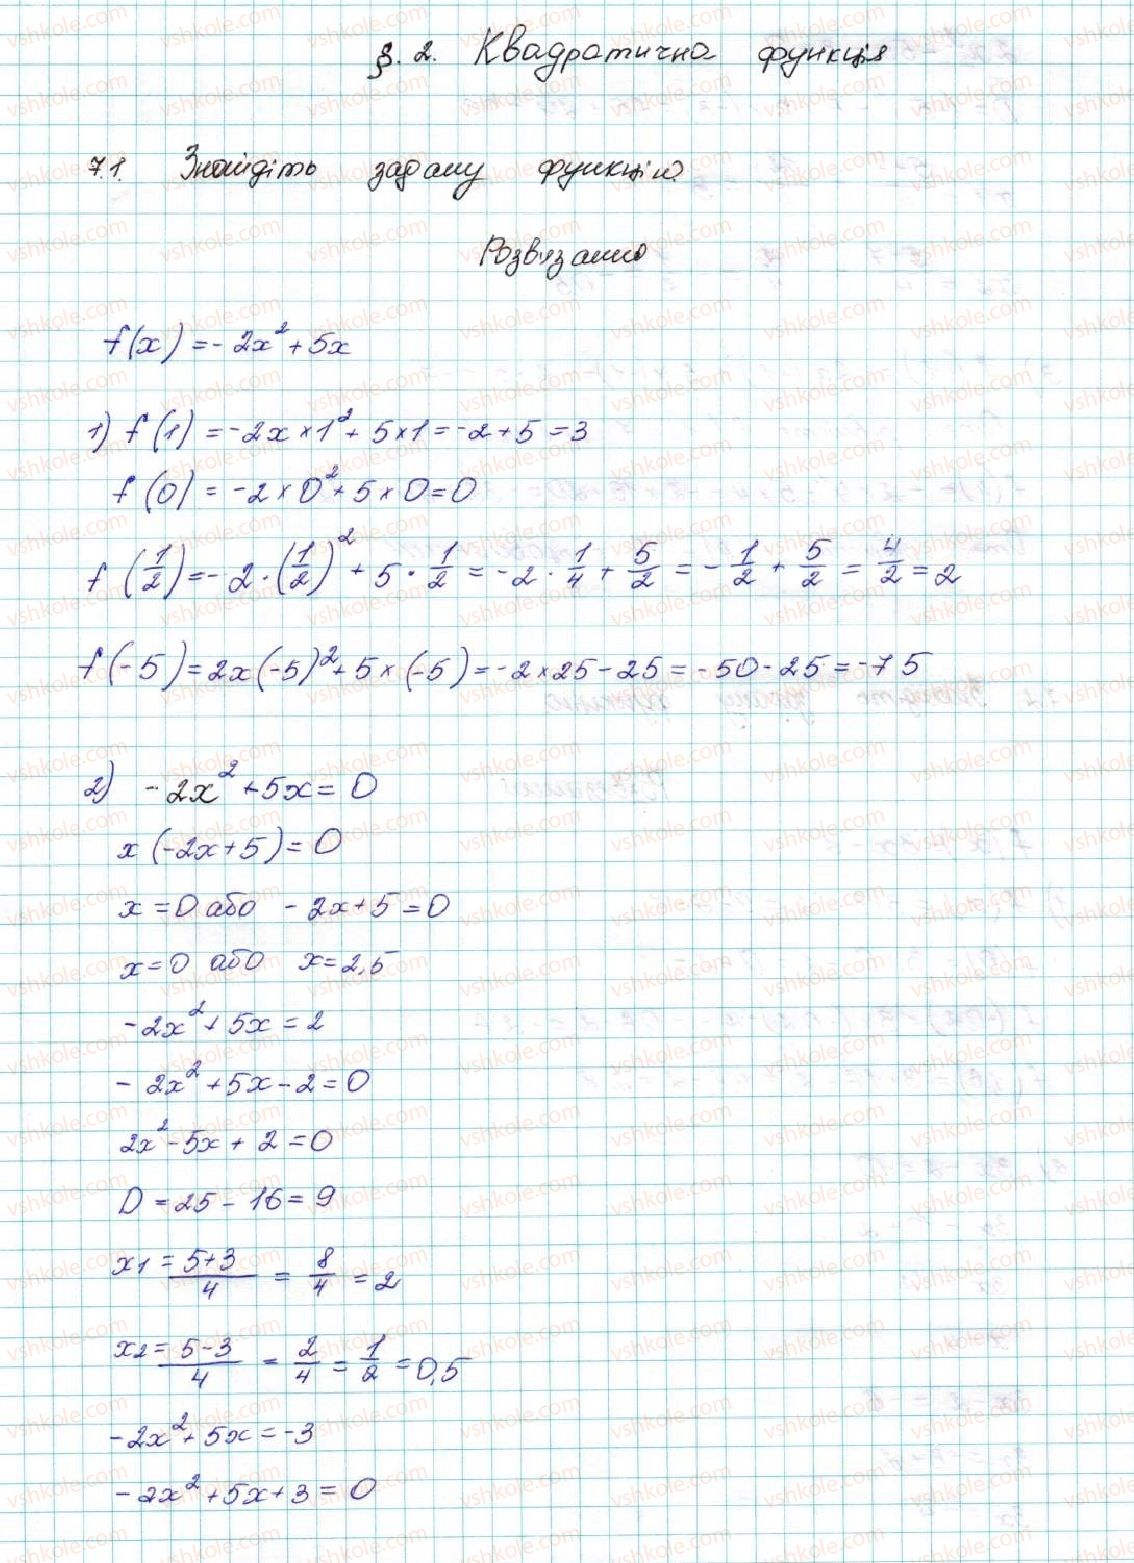 §. 2. Квадратична функція
7.1. Знайдіть задану функцію.
Розв'язання
f(x) = -2x² + 5x
1) f(1) = -2x × 1² + 5 × 1 = -2 + 5 = 3
f(0) = -2 × 0² + 5 × 0 = 0
f(1/2) = -2 · (1/2)² + 5 · 1/2 = -2 · 1/4 + 5/2 = -1/2 + 5/2 = 4/2 = 2
f(-5) = 2x(-5)² + 5 × (-5) = -2 × 25 - 25 = -50 - 25 = -75
2) -2x² + 5x = 0
x(-2x + 5) = 0
x = 0 або -2x + 5 = 0
x = 0 або x = 2,5
-2x² + 5x = 2
-2x² + 5x - 2 = 0
2x² - 5x + 2 = 0
D = 25 - 16 = 9
x1 = 5+3/4 = 8/4 = 2
x2 = 5-3/4 = 2/4 = 1/2 = 0,5
-2x² + 5x = -3
-2x² + 5x + 3 = 0